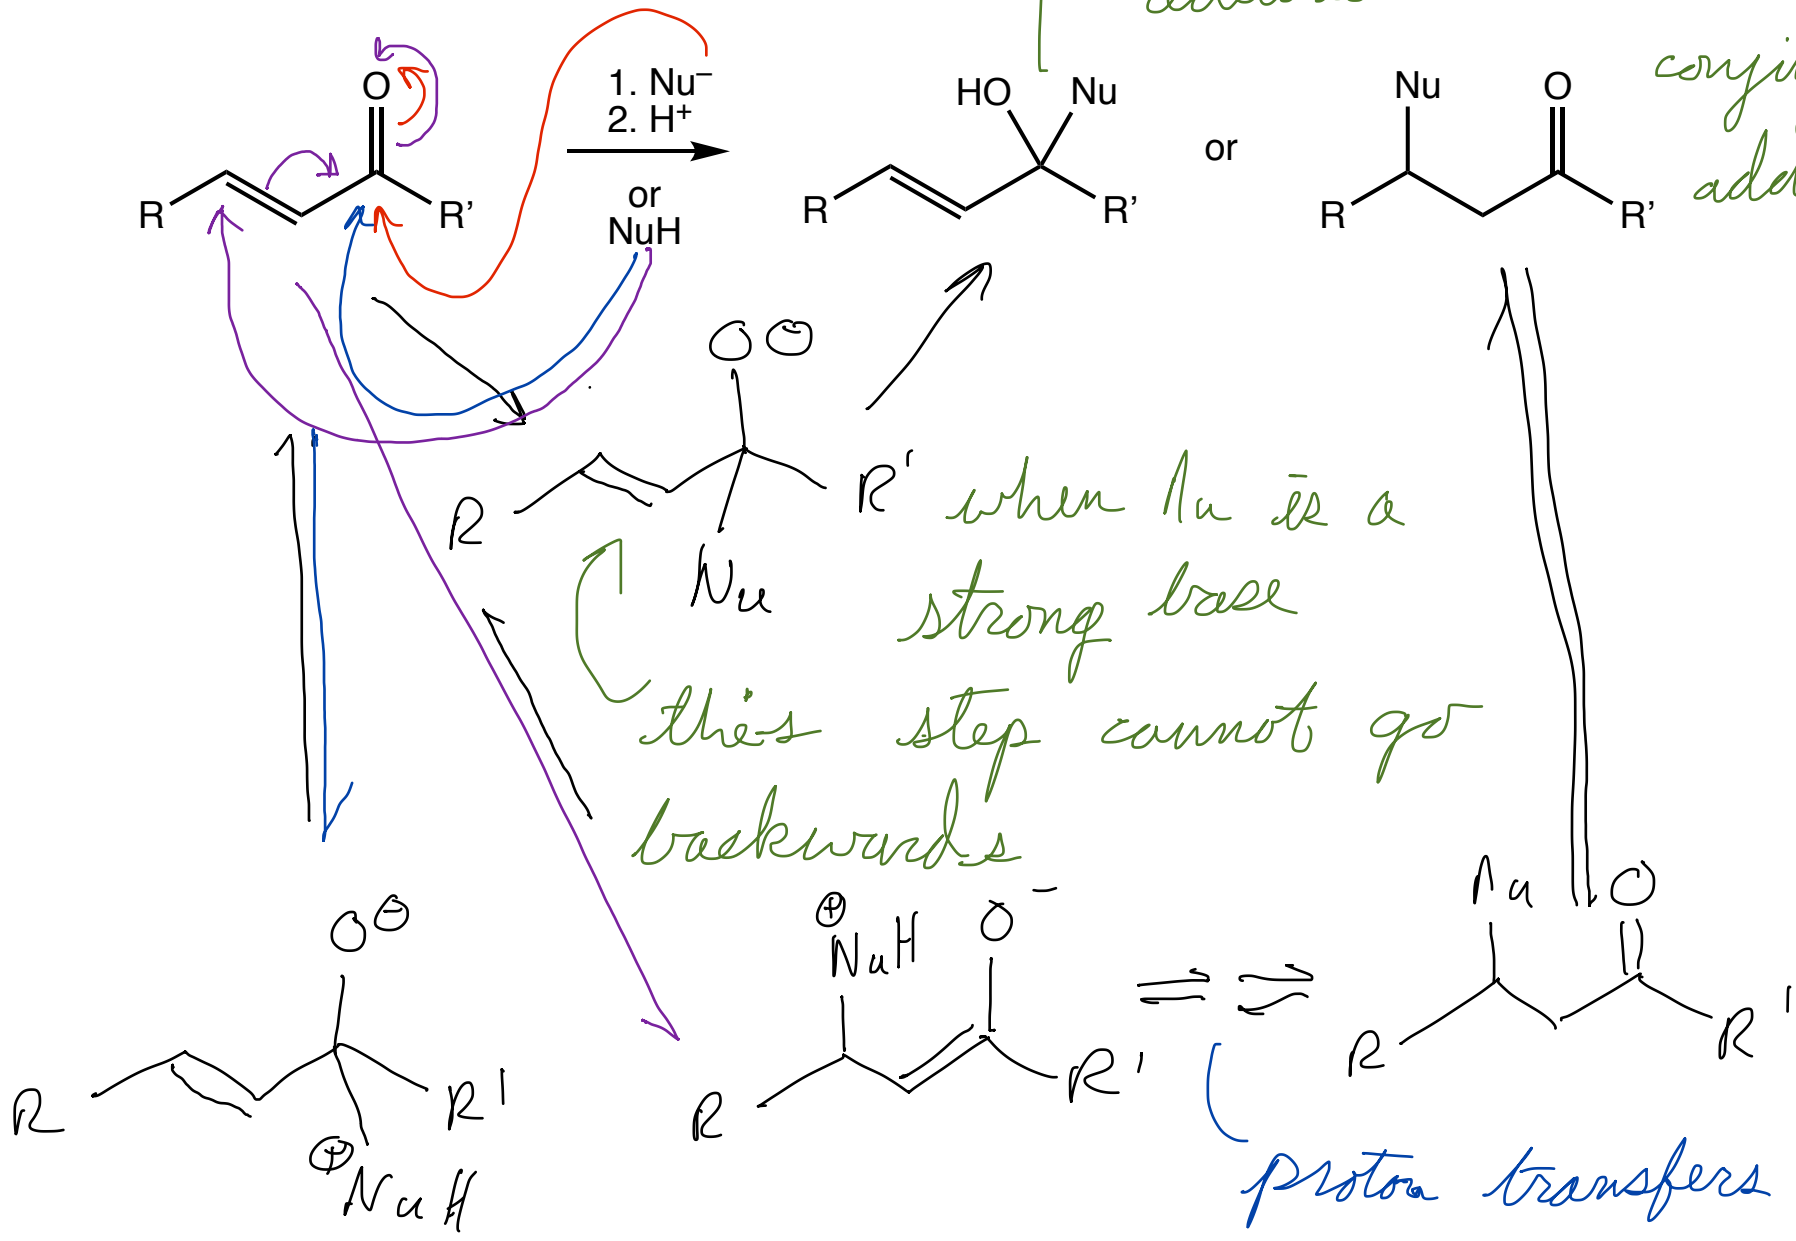 O
1. Nu⁻
2. H⁺
or
NuH
R
R'
HO
Nu
R
R'
or
Nu
O
R
R'
add
O ⊖
R
R'
Nu
when Nu is a
strong base
this step cannot go
backwards
O ⊖
R
R'
⊕
NuH
⊕
NuH
O⁻
R
R'
Nu
O
R
R'
proton transfers